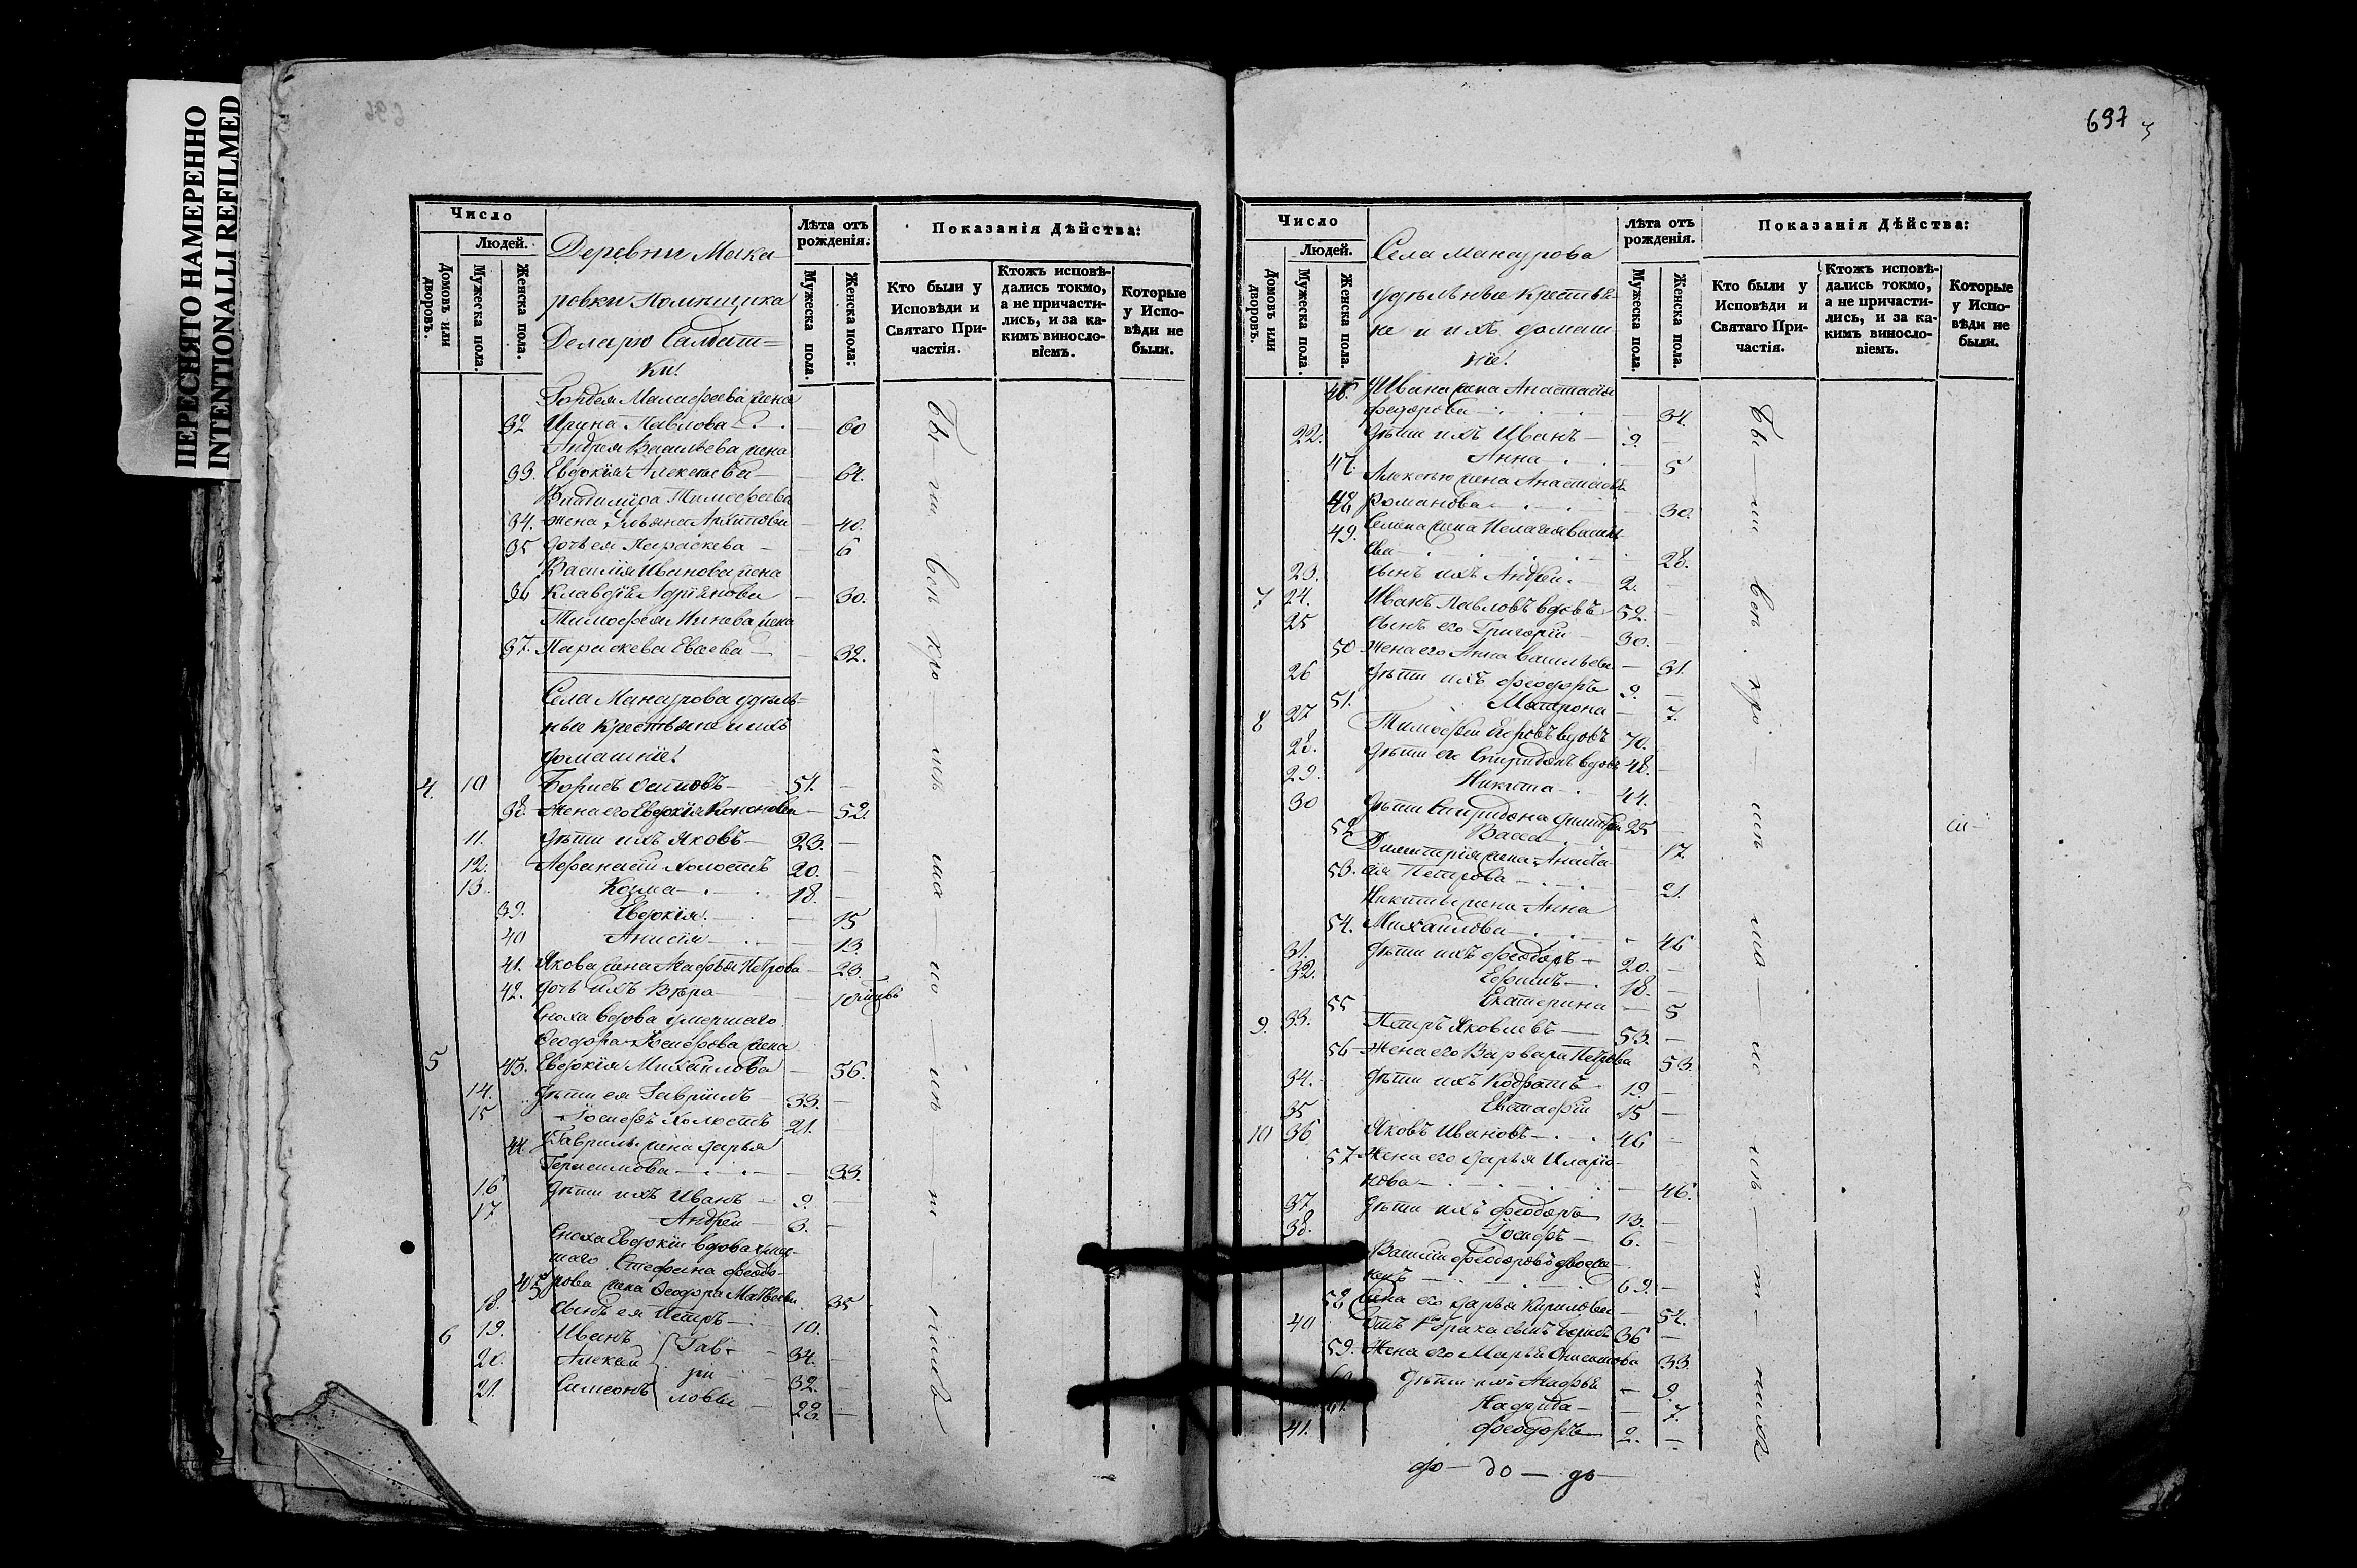 ПЕРЕСНЯТО НАМЕРЕННО
INTENTIONALLI REFILMED
696
Число
Людей.
Домовъ или дворовъ.
Мужеска пола.
Женска пола.
Деревни Мака
ровки Помѣщика
Деларю Салдат=
ки!
Лѣта отъ рожденія.
Мужеска пола.
Женска пола:
Показанія Дѣйства:
Кто были у Исповѣди и Святаго При-частія.
Ктожъ исповѣ-дались токмо, а не причасти-лись, и за ка-кимъ винословіемъ.
Которые у Испо-вѣди не были.
жена
32 Ирина Павлова 60
Андрея Васильева жена
33. Евдокія Алексѣева 64.
Тимофеева
34. жена Ульяна Архипова 40.
35 дочь ея Параскева 6
Василія Иванова жена
36 Клавдія Адріянова 30.
Тимофея Минева жена
37. Параскева Евсева 32.
Села Мансурова удѣль-
ные крестьяне и ихъ
домашніе!
4. 10 Борисъ Осиповъ 51.
38. Жена его Евдокія Кононова 52.
11. дѣти ихъ Яковъ 23.
12. Афанасій холостъ 20.
13. Козма 18.
39. Евдокія 15
40 Анисія 13
41. Якова жена Агафья Петрова 23.
42. дочь ихъ Вѣра 10
Сноха вдова умершаго
Феодора Іосифова жена
5 43. Евдокія Михайлова 56.
14. дѣти ея Гавріилъ 33.
15 Іосифъ холостъ 21.
44. Гаврила жена Дарья
Герасимова 33.
16 дѣти ихъ Иванъ 9.
17 Андрей 3.
Сноха Евдокіи вдова умер-
шаго Стефана Феодо-
45 рова жена Феодора Матвеева 35
18. сынъ ея Петръ 10.
6 19. Иванъ Гав- 34.
20. Алексей ри- 32.
21. Симеонъ ловы 28.
697
Число
Людей.
Домовъ или дворовъ.
Мужеска пола.
Женска пола.
Села Мансурова
удѣльные крестья-
не и ихъ домаш-
ніе!
Лѣта отъ рожденія.
Мужеска пола.
Женска пола.
Показанія Дѣйства:
Кто были у Исповѣди и Святаго При-частія.
Ктожъ исповѣ-дались токмо, а не причасти-лись, и за ка-кимъ винословіемъ.
Которые у Испо-вѣди не были.
46. Ивана жена Анастасія
Феодорова 34
22. дѣти ихъ Иванъ 9.
47. Анна 5
Алексѣю жена Анастасія
48 Романова 30.
49. Семена жена Пелагея Василь-
ева 28.
23. сынъ ихъ Андрей 2.
7 24. Иванъ Павловъ вдовъ 52.
25 сынъ его Григорій 30.
50 жена его Анна Васильева 31.
26 дѣти ихъ Феодоръ 9.
51. Матрона 7.
8 27 Тимофей Егоровъ вдовъ 70.
28. дѣти его Спиридонъ вдовъ 48.
29. Никита 44.
30 дѣти Спиридона Димитрій 25
52 Васса 17
Димитрія жена Анаста-
53. сія Петрова 21.
Никиты жена Анна
54. Михайлова 46
31. дѣти ихъ Феодоръ 20.
32. Ефимъ 18.
55 Екатерина 5
9. 33. Петръ Яковлевъ 53.
56 Жена его Варвара Петрова 53.
34. дѣти ихъ Кодратъ 19.
35 Евстафій 15
10 36 Яковъ Ивановъ 46
57 Жена его Дарья Иларіо-
нова 46.
37 дѣти ихъ Феодоръ 13.
38. Іосифъ 6.
Василій Феодоровъ
69.
58 жена его Дарья Кирилова 52.
40 сынъ Борисъ 36
59. Жена его Марья 33.
дѣти ихъ Агафья 9.
61. Надежда 7.
41. Феодоръ 2.